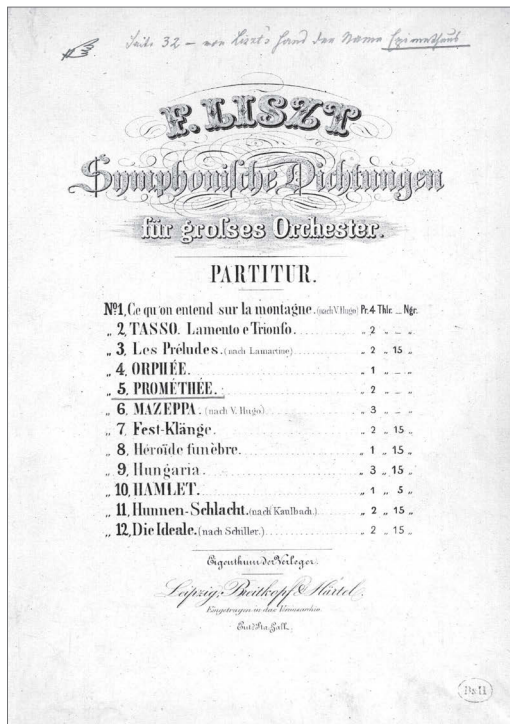 Seite 32 – von Liszt's Hand der Name Epimetheus
F. LISZT
Symphonische Dichtungen
für grosses Orchester.
PARTITUR.
No 1, Ce qu'on entend sur la montagne. (nach V. Hugo) Pr. 4 Thlr. _ Ngr.
„ 2, TASSO. Lamento e Trionfo. „ 2 „ _ „
„ 3, Les Préludes. (nach Lamartine) „ 2 „ 15 „
„ 4, ORPHÉE. „ 1 „ _ „
„ 5, PROMÉTHÉE. „ 2 „ _ „
„ 6, MAZEPPA. (nach V. Hugo) „ 3 „ _ „
„ 7, Fest-Klänge. „ 2 „ 15 „
„ 8, Héroïde funèbre. „ 1 „ 15 „
„ 9, Hungaria. „ 3 „ 15 „
„ 10, HAMLET. „ 1 „ 5 „
„ 11, Hunnen-Schlacht. (nach Kaulbach.) „ 2 „ 15 „
„ 12, Die Ideale. (nach Schiller.) „ 2 „ 15 „
Eigenthum der Verleger.
Leipzig, Breitkopf & Härtel.
Eingetragen in das Vereinsarchiv.
Ent.d Sta. Hall.